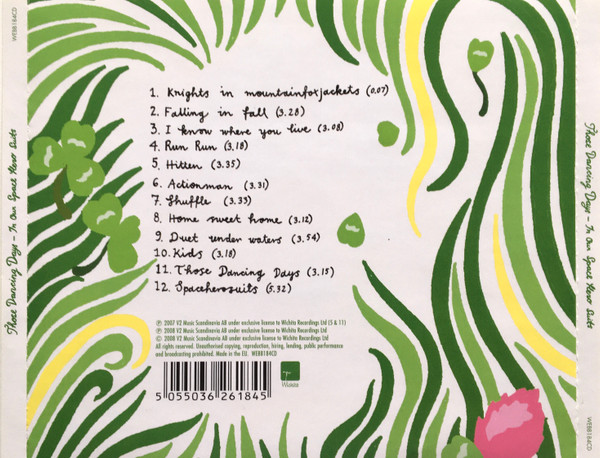 WEBB184CD
Those Dancing Days – In Our Space Hero Suits
1. Knights in mountainfoxjackets (0.07)
2. Falling in fall (3.28)
3. I know where you live (3.08)
4. Run Run (3.18)
5. Hitten (3.35)
6. Actionman (3.31)
7. Shuffle (3.33)
8. Home sweet home (3.12)
9. Duet under waters (3.54)
10. Kids (3.18)
11. Those Dancing Days (3.15)
12. Spaceherosuits (5.32)
℗ 2007 V2 Music Scandinavia AB under exclusive license to Wichita Recordings Ltd (5 & 11)
℗ 2008 V2 Music Scandinavia AB under exclusive license to Wichita Recordings Ltd
© 2008 V2 Music Scandinavia AB under exclusive license to Wichita Recordings Ltd
All rights reserved. Unauthorised copying, reproduction, hiring, lending, public performance
and broadcasting prohibited. Made in the EU. WEBB184CD
Wichita
5 055036 261845
Those Dancing Days – In Our Space Hero Suits
WEBB184CD